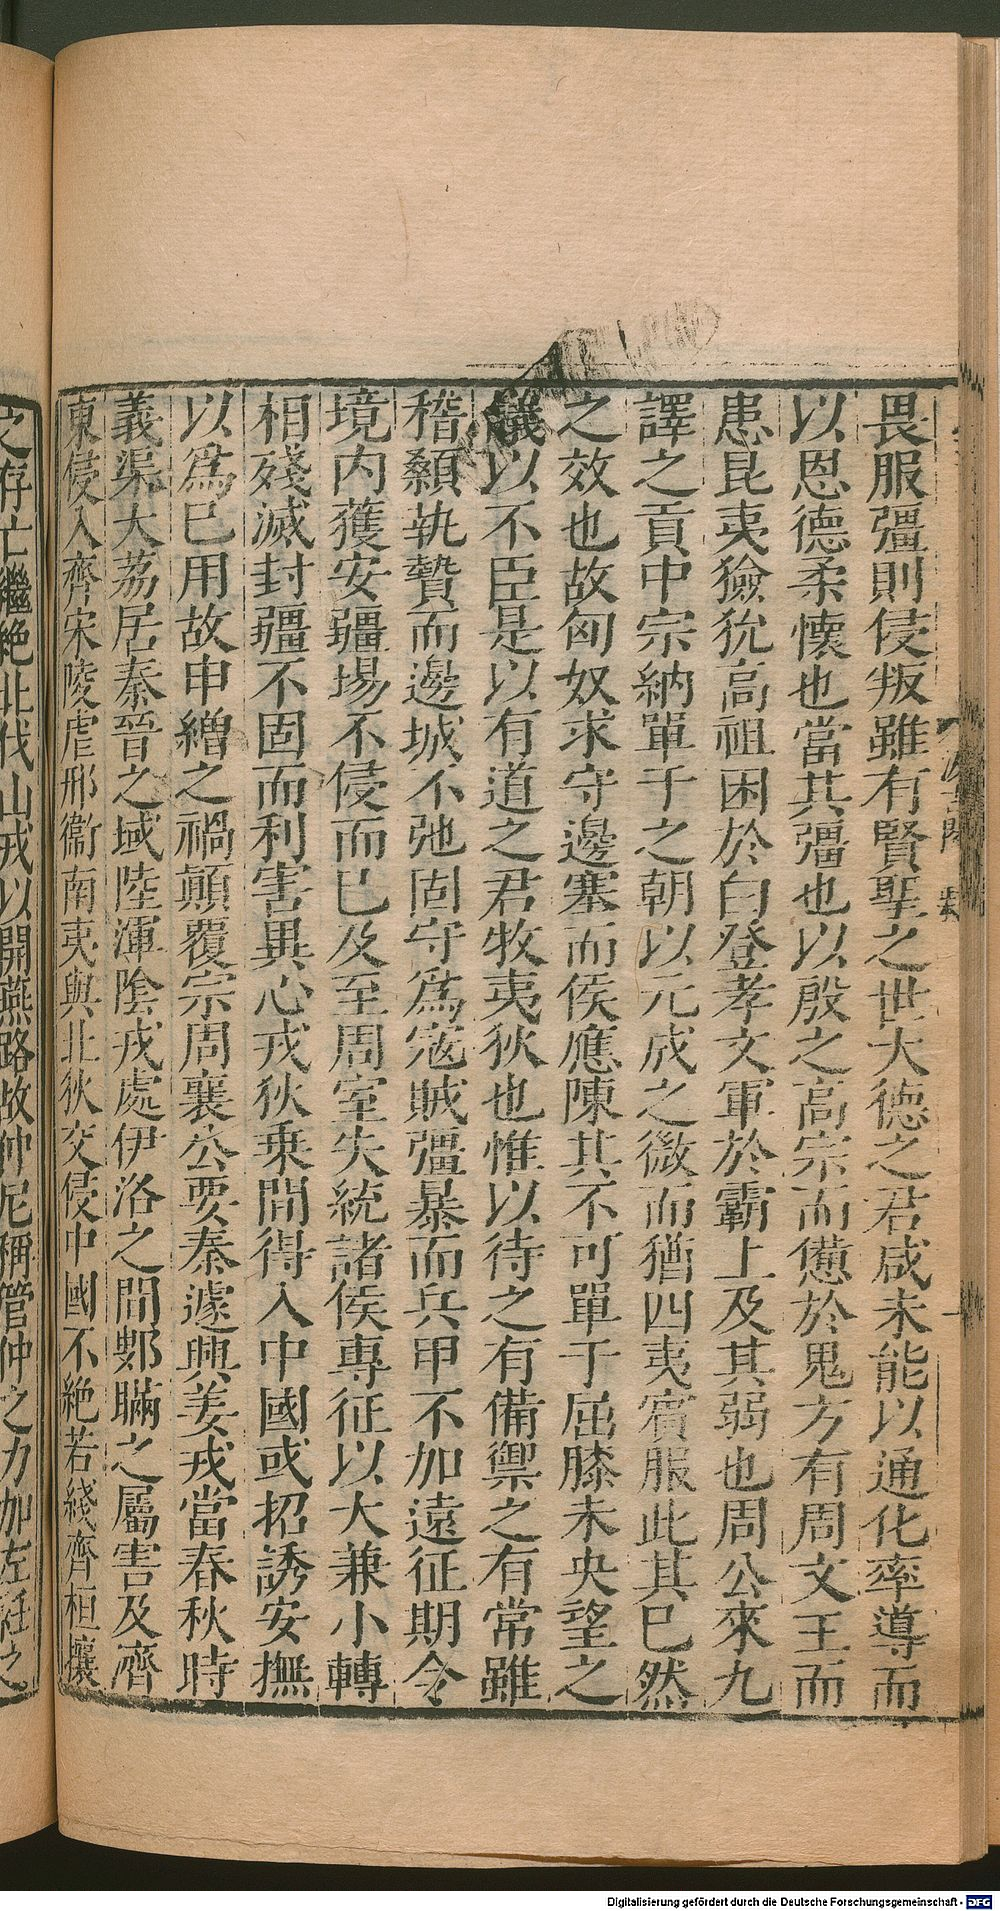 畏服彊則侵叛雖有賢聖之世大德之君咸未能以通化率導而
以恩德柔懷也當其彊也以殷之高宗而憊於鬼方有周文王而
患昆夷獫狁高祖困於白登孝文軍於霸上及其弱也周公來九
譯之貢中宗納單于之朝以元成之微而猶四夷賓服此其已然
之效也故匈奴求守邊塞而侯應陳其不可單于屈膝未央望之
議以不臣是以有道之君牧夷狄也惟以待之有備禦之有常雖
稽顙執贄而邊城不弛固守爲寇賊彊暴而兵甲不加遠征期令
境内獲安疆場不侵而已及至周室失統諸侯專征以大兼小轉
相殘滅封疆不固而利害異心戎狄乗間得入中國或招誘安撫
以爲已用故申繒之禍顛覆宗周襄公要秦遽興姜戎當春秋時
義渠大荔居秦晉之域陸渾陰戎處伊洛之間鄋瞞之屬害及濟
東侵入齊宋陵虐邢衞南夷與北狄交侵中國不絶若綫齊桓攘
之存亡繼絶北伐山戎以開燕路故仲尼稱管仲之力加左衽之
Digitalisierung gefördert durch die Deutsche Forschungsgemeinschaft - DFG